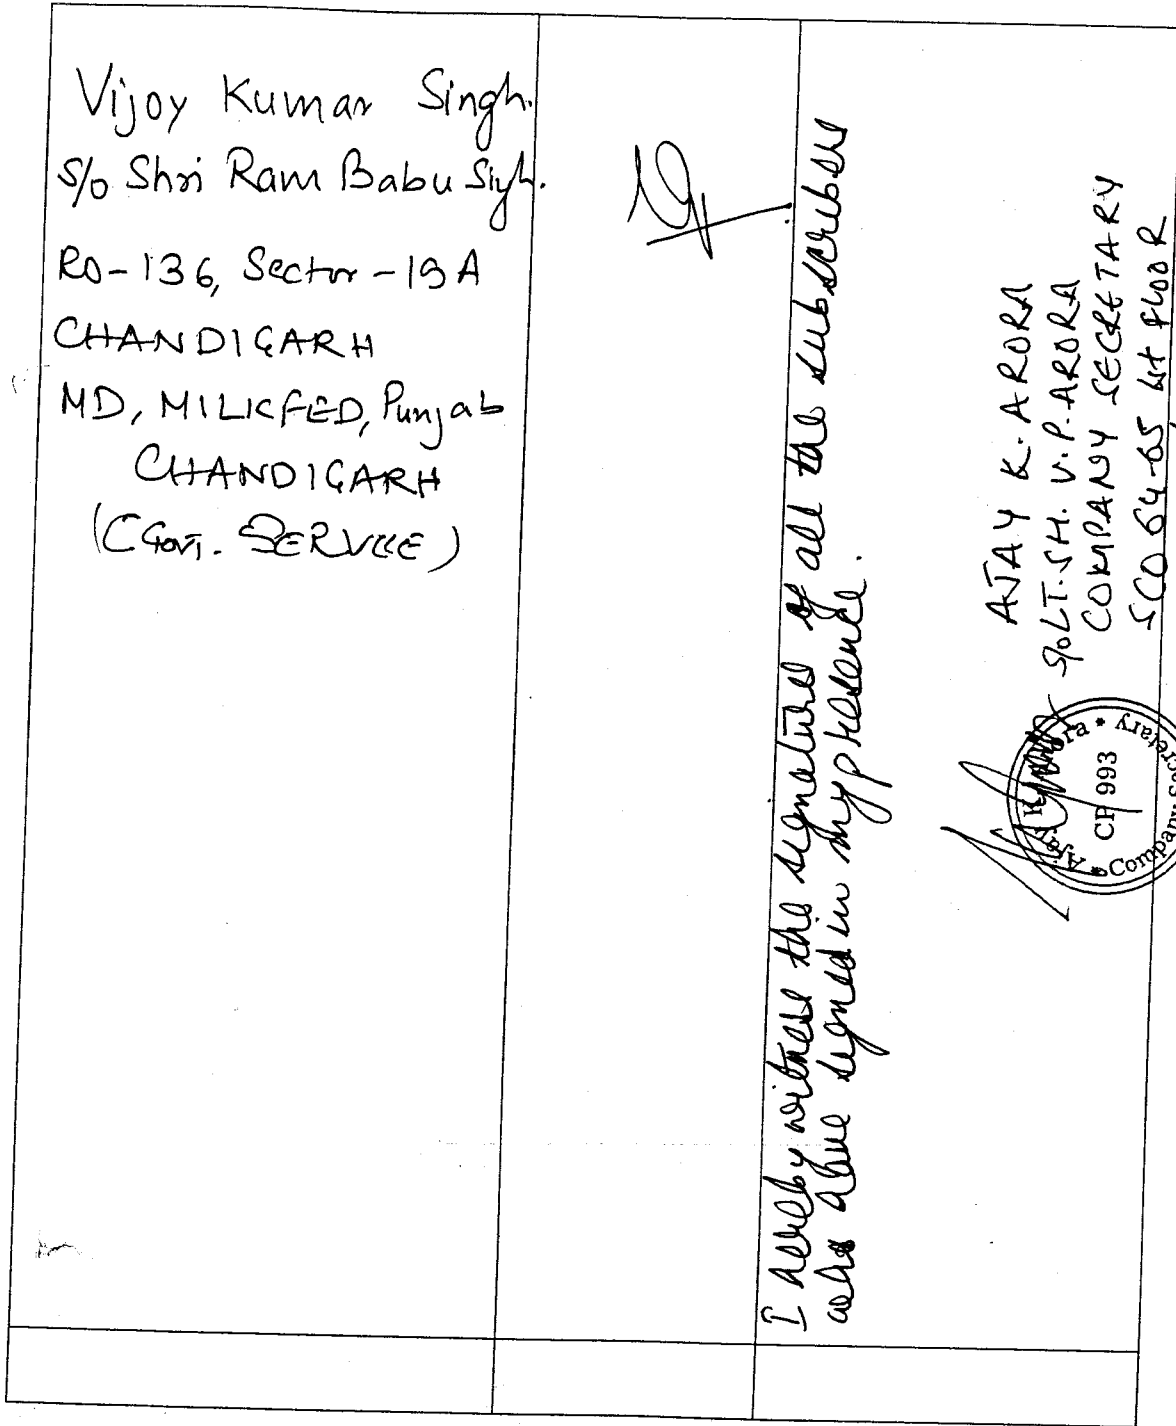 Vijoy Kumar Singh.
S/o Shri Ram Babu Singh.
RO-136, Sector-19A
CHANDIGARH
MD, MILKFED, Punjab
CHANDIGARH
(Govt. SERVICE)
I hereby witness the signatures of all the subscribers
who have signed in my presence.
AJAY K. ARORA
S/o LT. SH. V. P. ARORA
COMPANY SECRETARY
SCO 64-65 1st FLOOR
Ajay K. Arora * Company Secretary *
CP 993